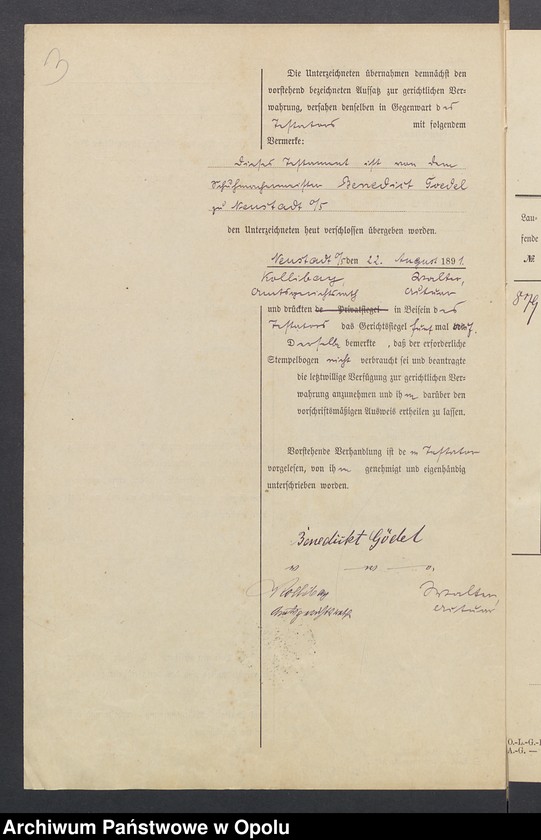 3
Die Unterzeichneten übernahmen demnächst den
vorstehend bezeichneten Aufsatz zur gerichtlichen Ver-
wahrung, versahen denselben in Gegenwart des
Testators mit folgendem
Vermerke:
Dieses Testament ist von dem
Schuhmachermeister Benedict Goedel
zu Neustadt O/S
den Unterzeichneten heut verschlossen übergeben worden.
Neustadt O/S den 22. August 1891.
Kollibay, Walter,
Amtsgerichtsrath Actuar
und drückten de Privatsiegel in Beisein des
Testators das Gerichtssiegel fünf mal auf.
Derselbe bemerkte, daß der erforderliche
Stempelbogen nicht verbraucht sei und beantragte
die letztwillige Verfügung zur gerichtlichen Ver-
wahrung anzunehmen und ihm darüber den
vorschriftsmäßigen Ausweis ertheilen zu lassen.
Vorstehende Verhandlung ist dem Testator
vorgelesen, von ihm genehmigt und eigenhändig
unterschrieben worden.
Benedickt Gödel
Kollibay Walter,
Amtsgerichtsrath Actuar
Lau-
fende
№
879
O.-L.-G.-
A.-G. —
Archiwum Państwowe w Opolu